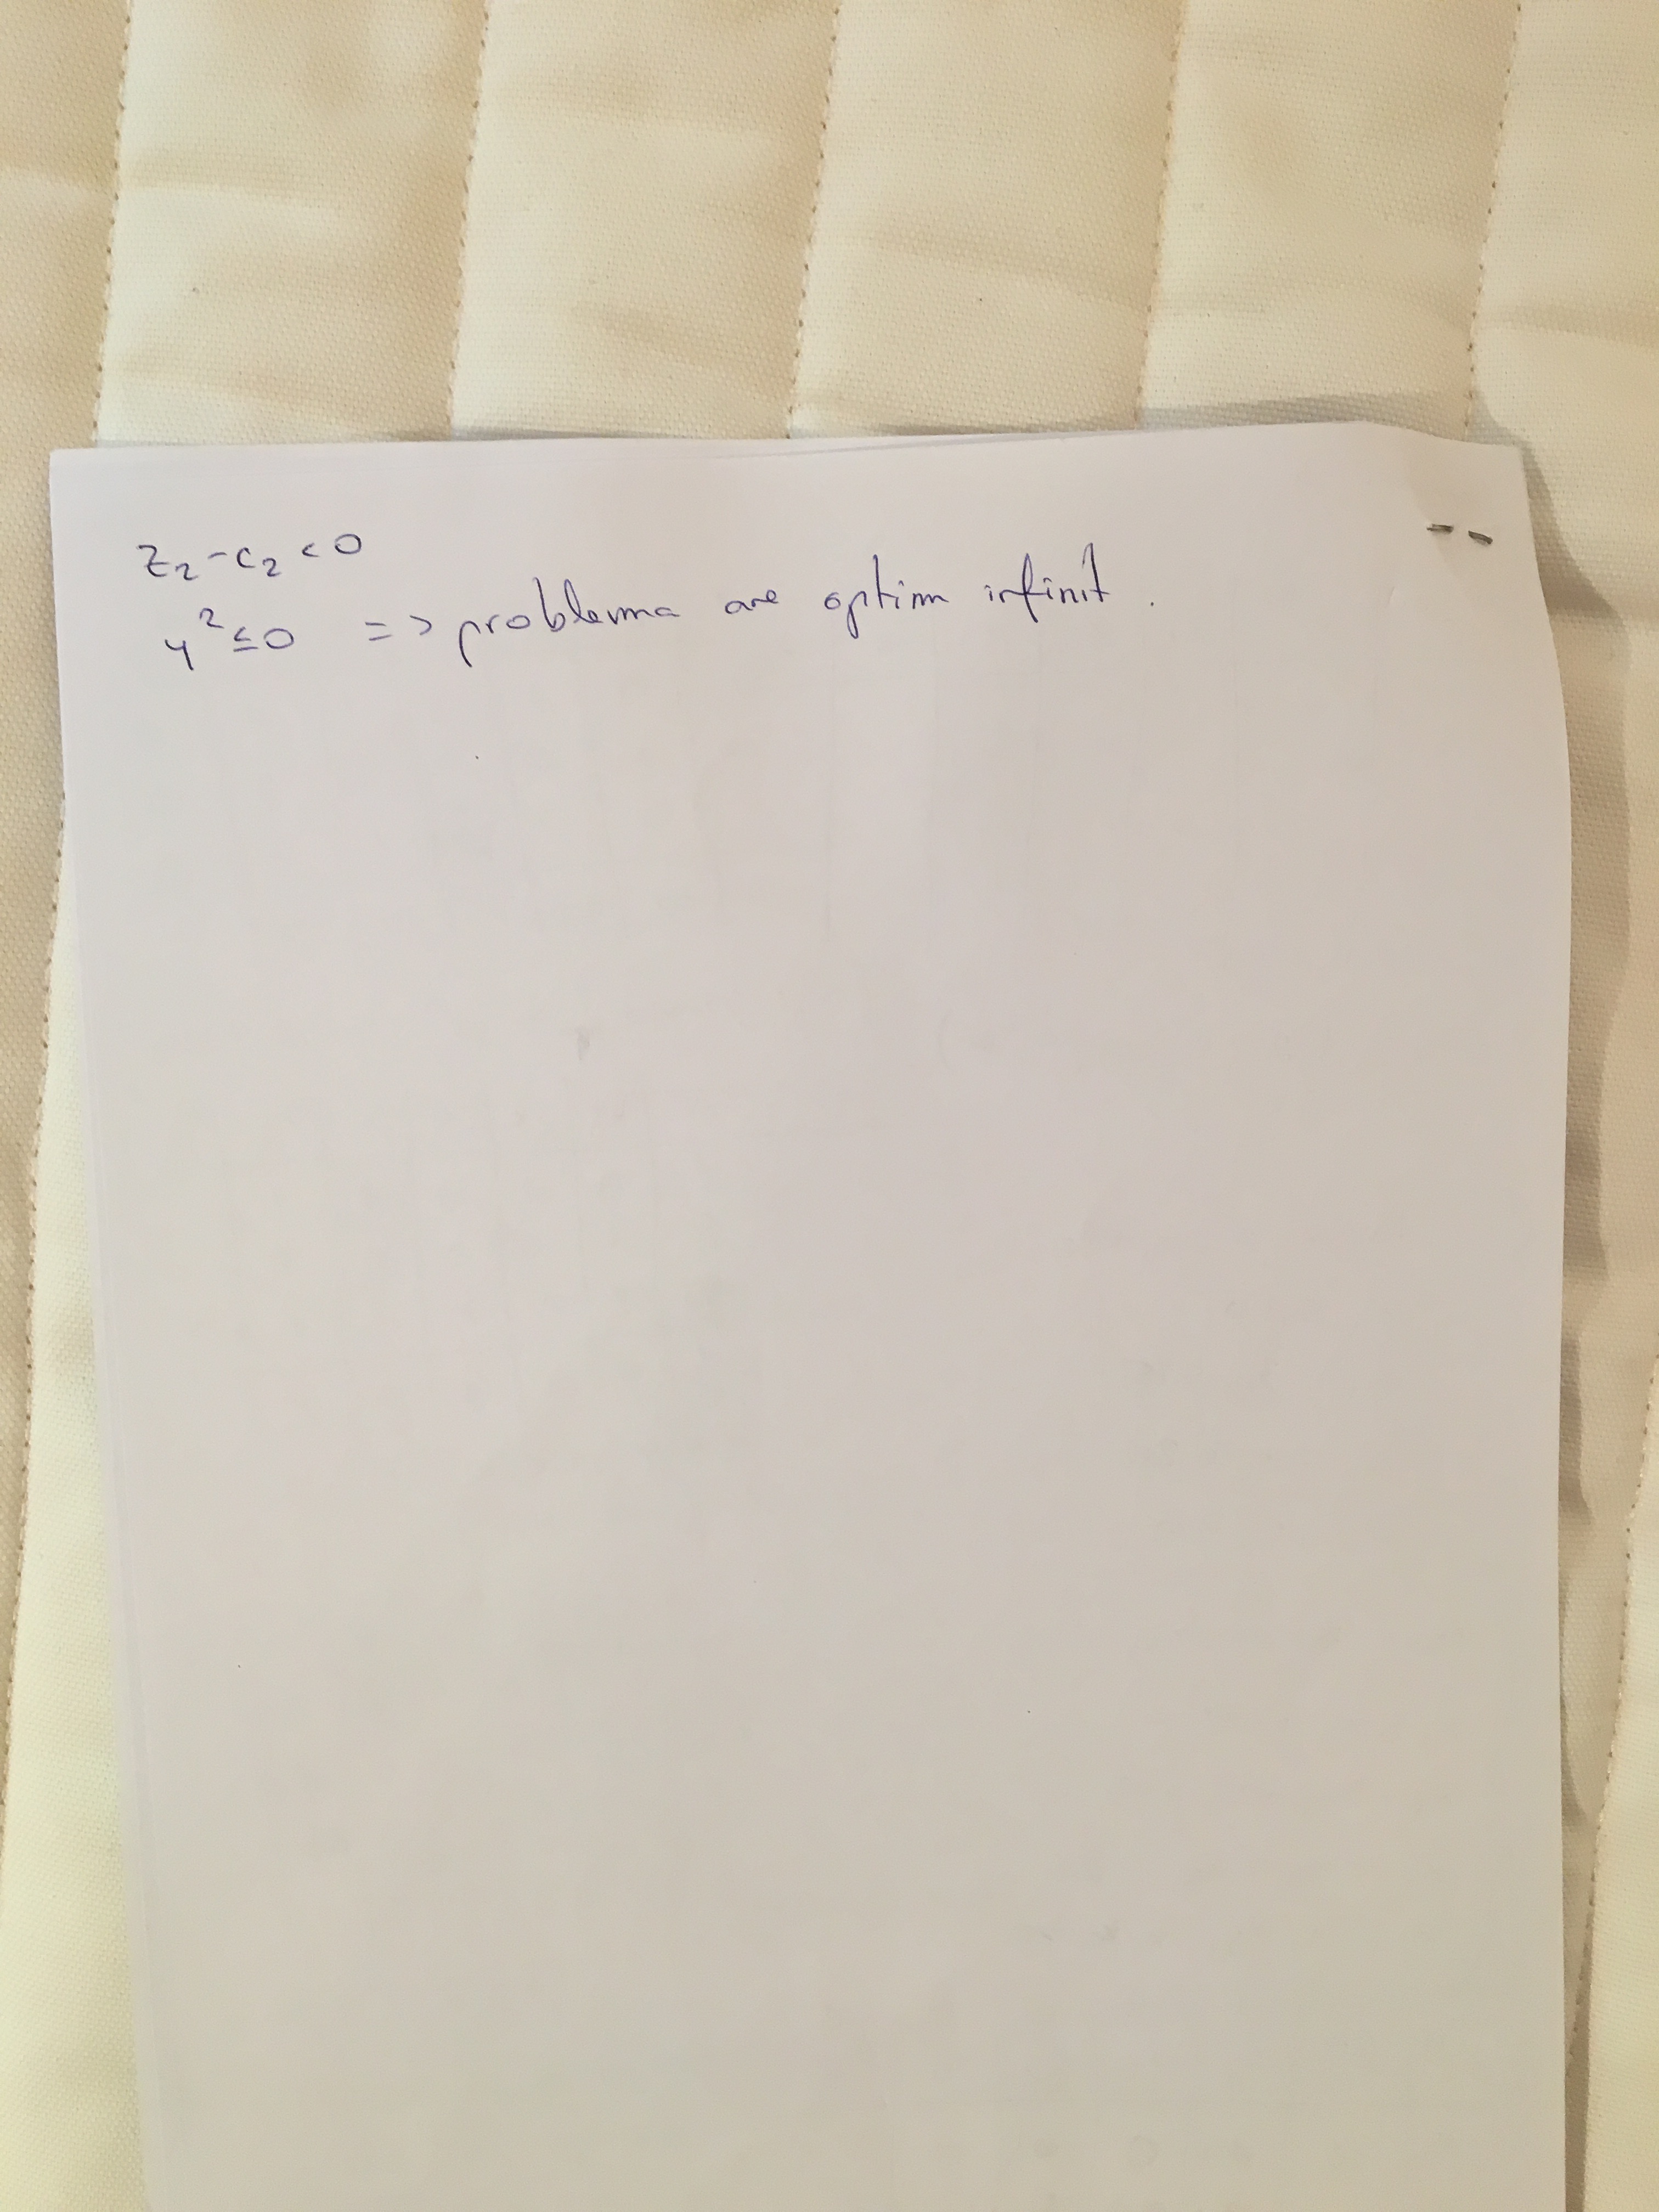 z₂-c₂<0
y²≤0 => problema are optim infinit.